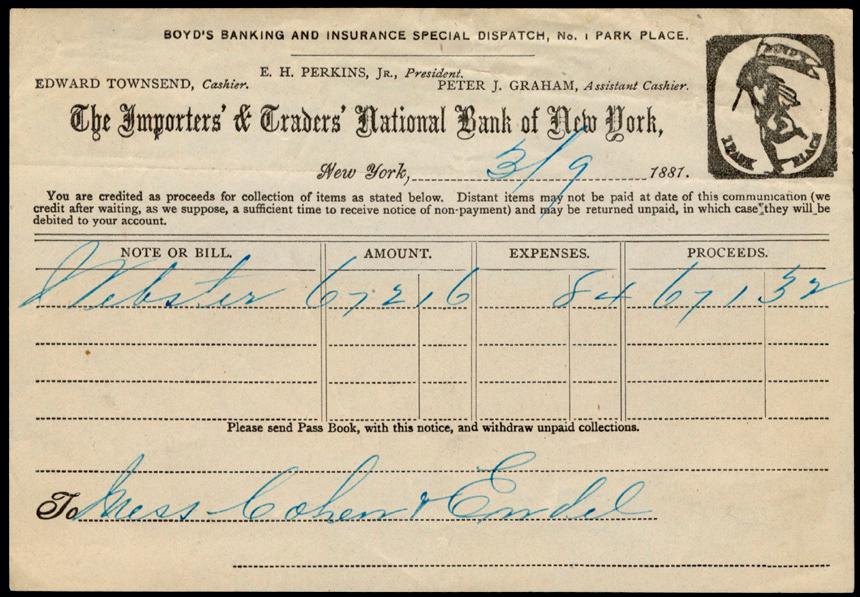 BOYD'S BANKING AND INSURANCE SPECIAL DISPATCH, No. 1 PARK PLACE.
E. H. PERKINS, JR., President.
EDWARD TOWNSEND, Cashier. PETER J. GRAHAM, Assistant Cashier.
The Importers' & Traders' National Bank of New York,
BOYD'S
1 PARK PLACE
New York, 3/9 1881.
You are credited as proceeds for collection of items as stated below. Distant items may not be paid at date of this communication (we
credit after waiting, as we suppose, a sufficient time to receive notice of non-payment) and may be returned unpaid, in which case they will be
debited to your account.
NOTE OR BILL. AMOUNT. EXPENSES. PROCEEDS.
Webster 672 16 84 671 32
Please send Pass Book, with this notice, and withdraw unpaid collections.
To Mess Cohen & Endel